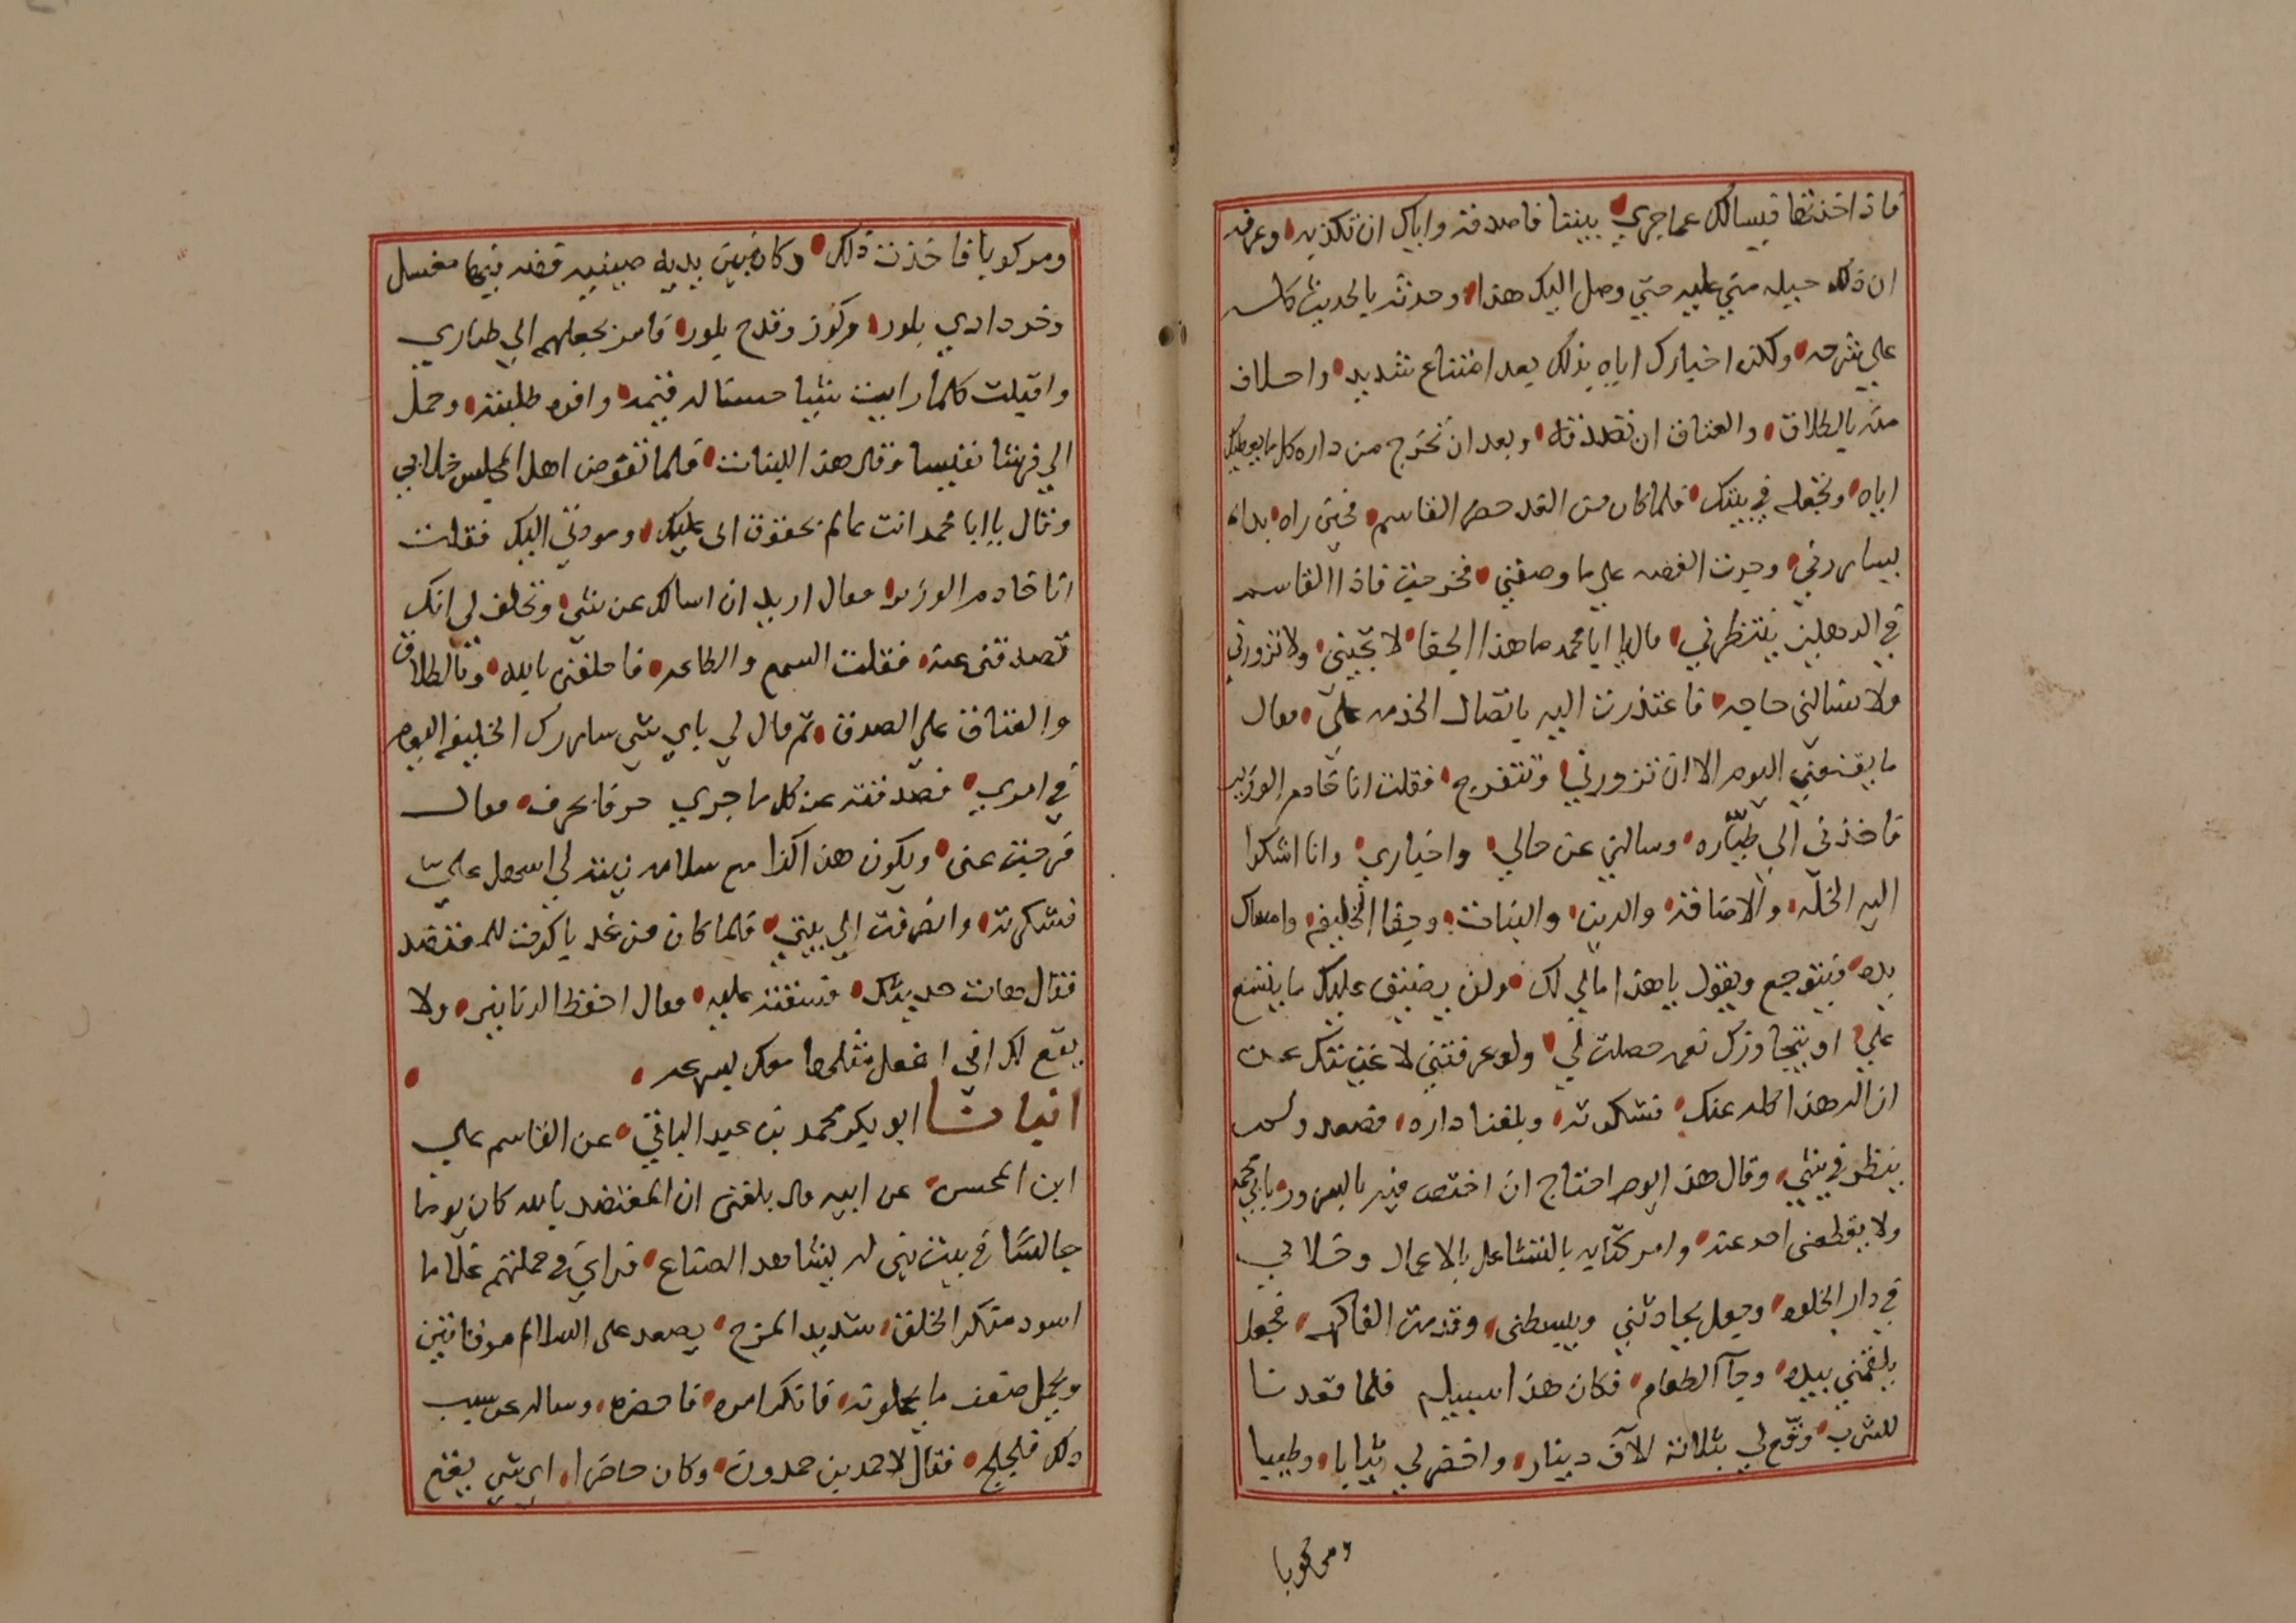 فاذا اخذتها فيسالك عما جري بيننا فاصدقه واياك ان تكذبه وعرفه
ان ذلك حيله مني عليه حتي وصل اليك هذا وحدثه بالحديث كله
علي شرحه وليكن اخبارك اياه بذلك بعد امتناع شديد واحلاف
منه بالطلاق والعتاق ان تصدقه وبعد ان تخرج من داره كل ما يعطيك
اياه وتجعله في بيتك فلما كان من الغد حضر القاسم فحين راه بدا
يساررني وجرت القصه علي ما وصفني فخرجت فاذا القاسم
في الدهليز ينتظرني فقال يا ابا محمد ما هذا الجفا لا تجيني ولا تزورني
ولا تسالني حاجه فاعتذرت اليه باتصال الخدمه علي فقال
ما يقنعني اليوم الا ان تزورني وتتفرج فقلت انا خادم الوزير
فاخذني الي طياره وسالني عن حالي واخباري وانا اشكوا
اليه الخله والاضافه والدين والبنات وجفا الخليفه وامساك
يده فيتوجع ويقول يا هذا مالي لك ولن يضيق عليك ما يتسع
علي او يتجاوزك نعمه حصلت لي ولو عرفتني لاعنتك علي
ازاله هذا كله عنك فشكرته وبلغنا داره فصعد ولم
ينظر في شي وقال هذا يوم احتاج ان اختص فيه بالسرور بابي محمد
ولا يقطعني احد عنه وامر كتابه بالتشاغل بالاعمال وخلا بي
في دار الخلوه وجعل يحادثني ويبسطني وقدمت الفاكهه فجعل
يلقمني بيده وجآ الطعام فكان هذا سبيله فلما قعدنا
للشرب وقع لي بثلاثه الآف دينار واحضر لي ثيابا وطيبا
ومركوبا
ومركوبا فاخذت ذلك وكان بين يديه صينيه فضه فيها مغسل
وخردادي بلور وكوز وقدح بلور فامر بحملهم الي طياري
واقبلت كلما رايت شيا حسنا له قيمه وافره طلبته وحمل
الي فرشا نفيسا وقال هذا للبنات فلما تقوض اهل المجلس خلا بي
وقال يا ابا محمد انت عالم بحقوق ابي عليك ومودتي اليك فقلت
انا خادم الوزير فقال اريد ان اسالك عن شي وتحلف لي انك
تصدقني عنه فقلت السمع والطاعه فاحلفني بالله وبالطلاق
والعتاق علي الصدق ثم قال لي باي شي ساررك الخليفه اليوم
في امري فصدقته عن كل ما جري حرفا بحرف فقال
فرجت عني ويكون هذا كذا مع سلامه نيته لي اسهل علي
فشكرته وانصرفت الي بيتي فلما كان من غد باكرت المعتضد
فقال هات حديثك فسقته عليه فقال احفظ الدنانير ولا
يقع لك اني افعل مثلها معك بسرعه
انبانا ابو بكر محمد بن عبد الباقي عن القاسم علي
ابن المحسن عن ابيه قال بلغني ان المعتضد بالله كان يوما
جالسا في بيت بني له يشاهد الصناع فراي في جملتهم غلاما
اسود منكر الخلق شديد المزح يصعد علي السلالم مرقاتين
ويحمل ضعف ما يحملونه فانكر امره فاحضره وساله عن سبب
ذلك فلجلج فقال لاحمد بن حمدون وكان حاضرا اي شي يقع